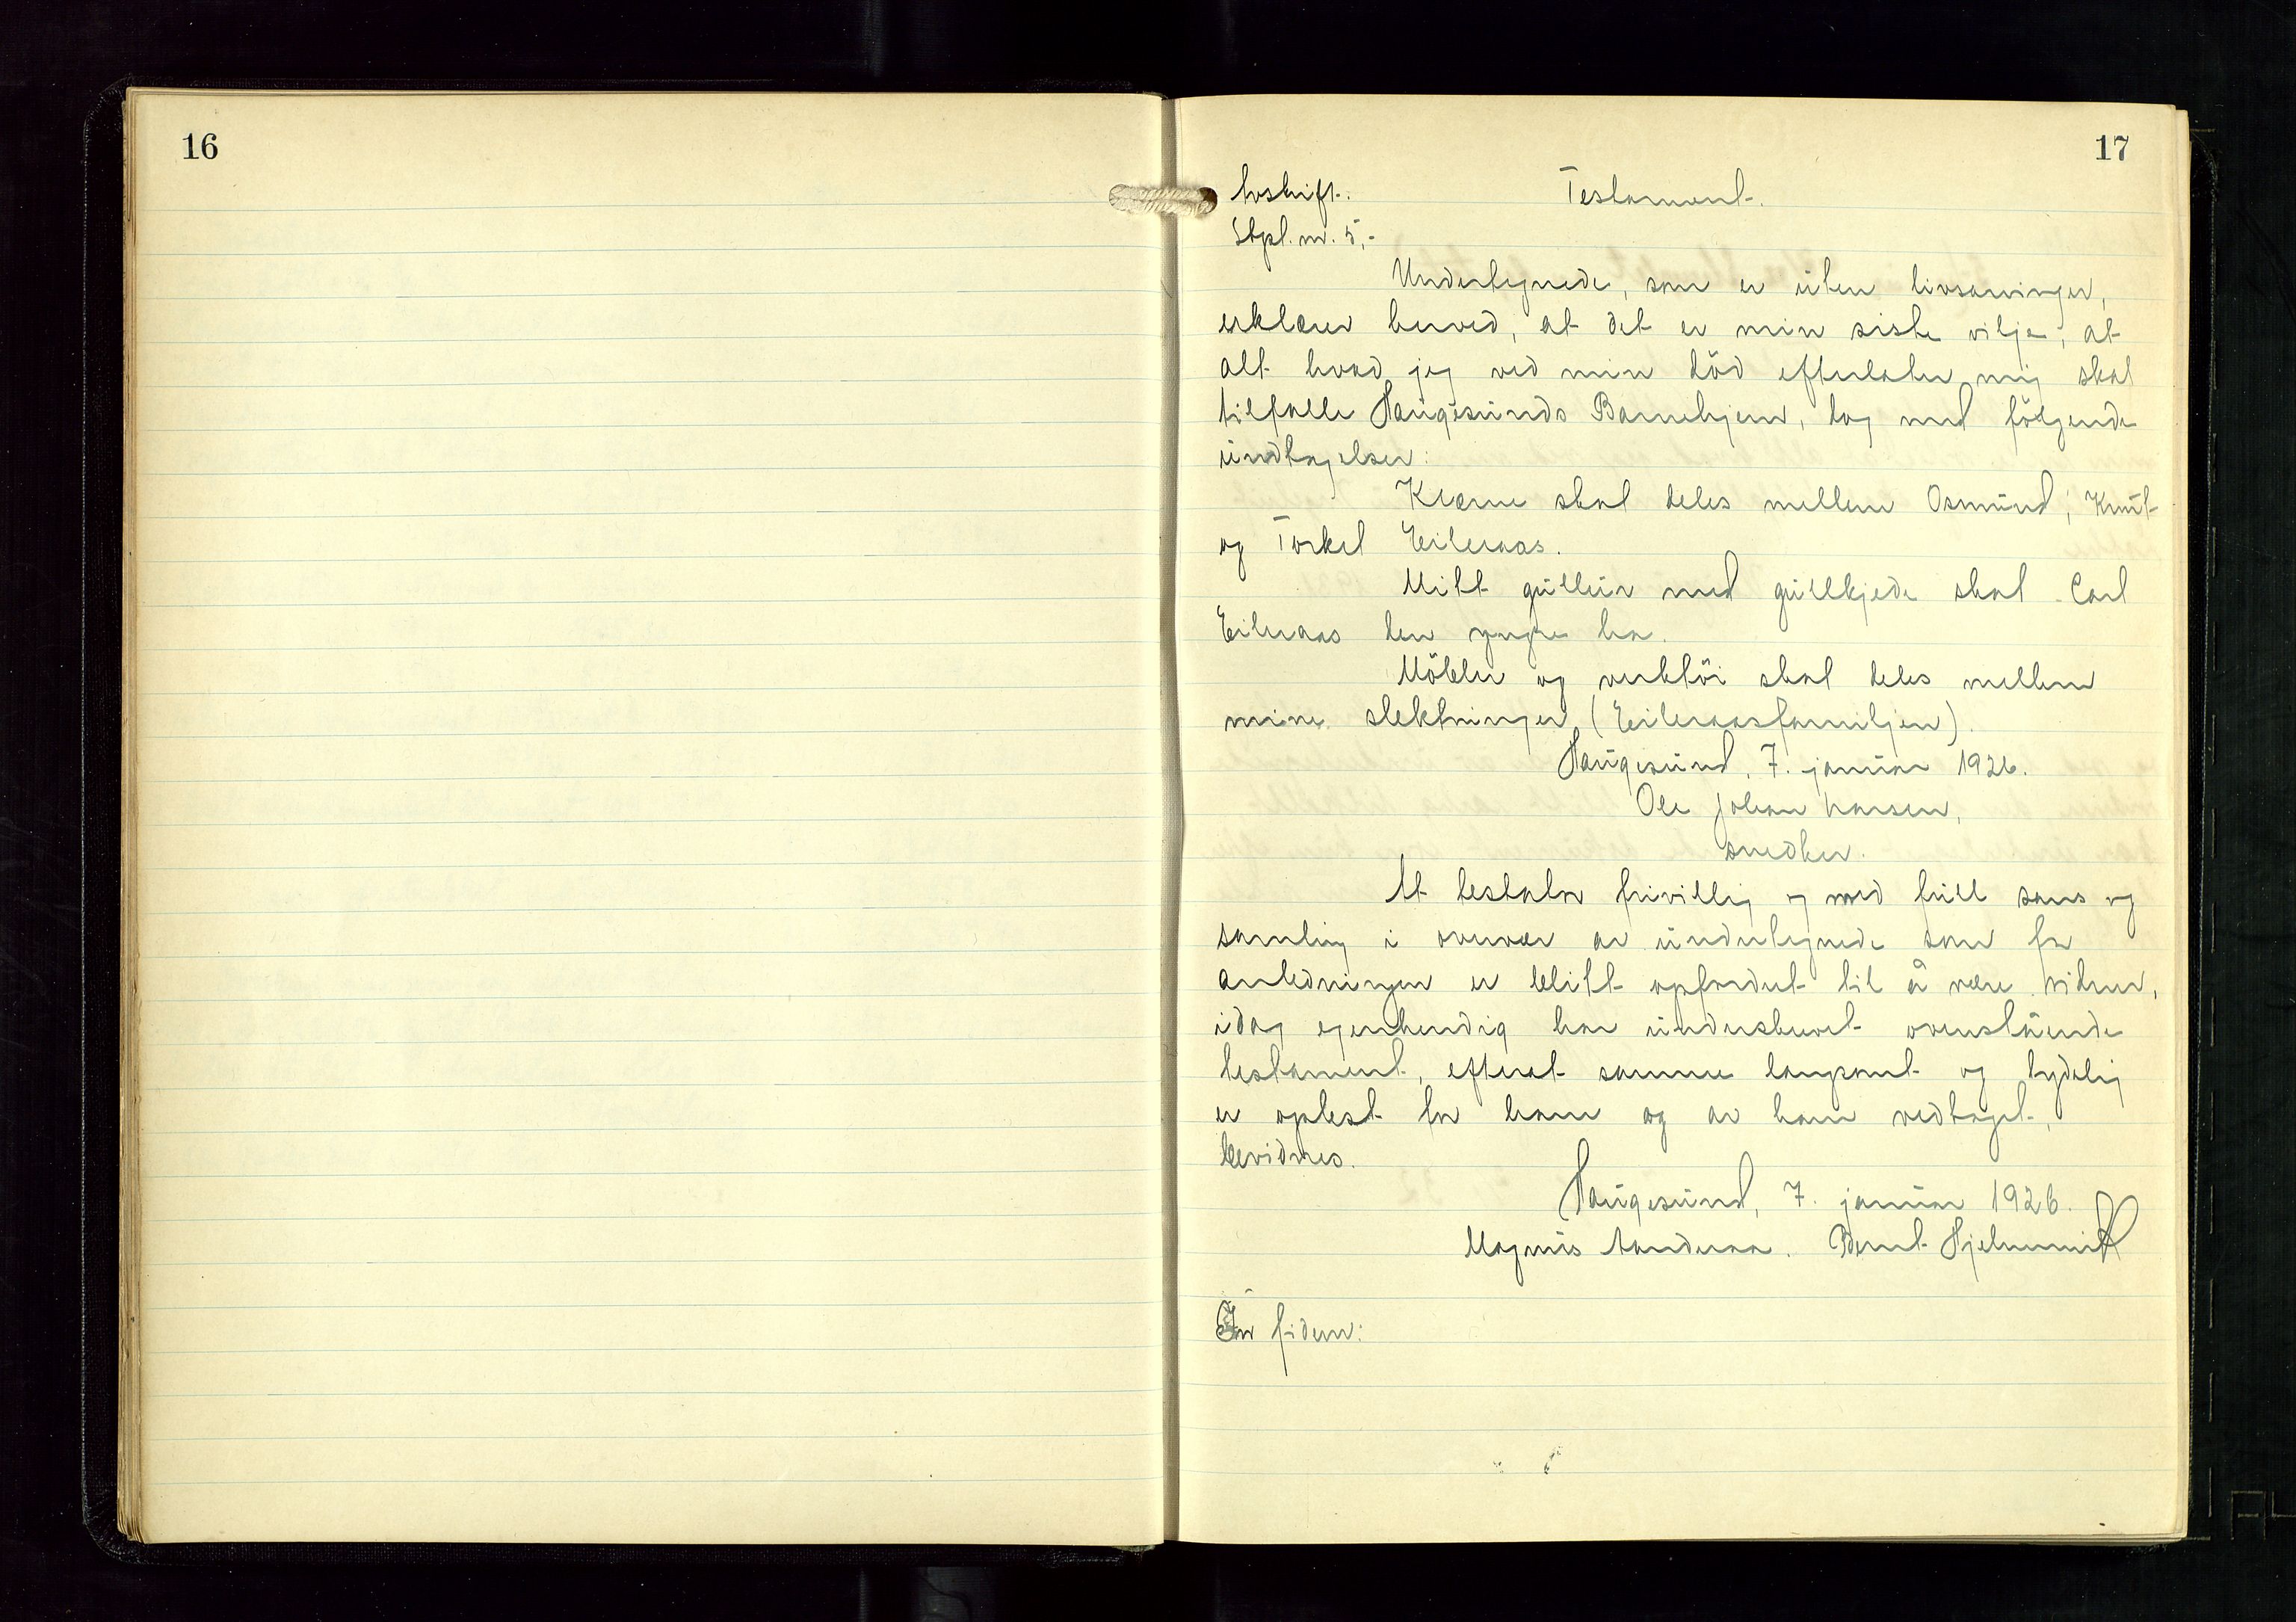 16
17
Avskrift. Testament.
Stpl. m. 5,-
Undertegnede, som er uten livsarvinger,
erklærer herved, at det er min siste vilje, at
alt hvad jeg ved min död efterlater mig skal
tilfalle Haugesunds Barnehjem, dog med fölgende
undtagelser:
Klærne skal deles mellem Osmund, Knut
og Torkel Eileraas.
Mitt gullur med gullkjede skal Carl
Eileraas den yngre ha.
Möbler og verktöi skal deles mellem
mine slektninger (Eileraasfamiljen).
Haugesund, 7. januar 1926.
Ole Johan Hansen,
snedker.
At testator frivillig og med full sans og
samling i overvær av undertegnede som for
anledningen er blitt opfordret til å være vidner,
idag egenhendig har underskrevet ovenstående
testament, efterat samme langsomt og tydelig
er oplest for ham og av ham vedtaget,
bevidnes.
Haugesund, 7. januar 1926.
Magnus Sanderaa. Bernt Hjelmevik
In fidem: